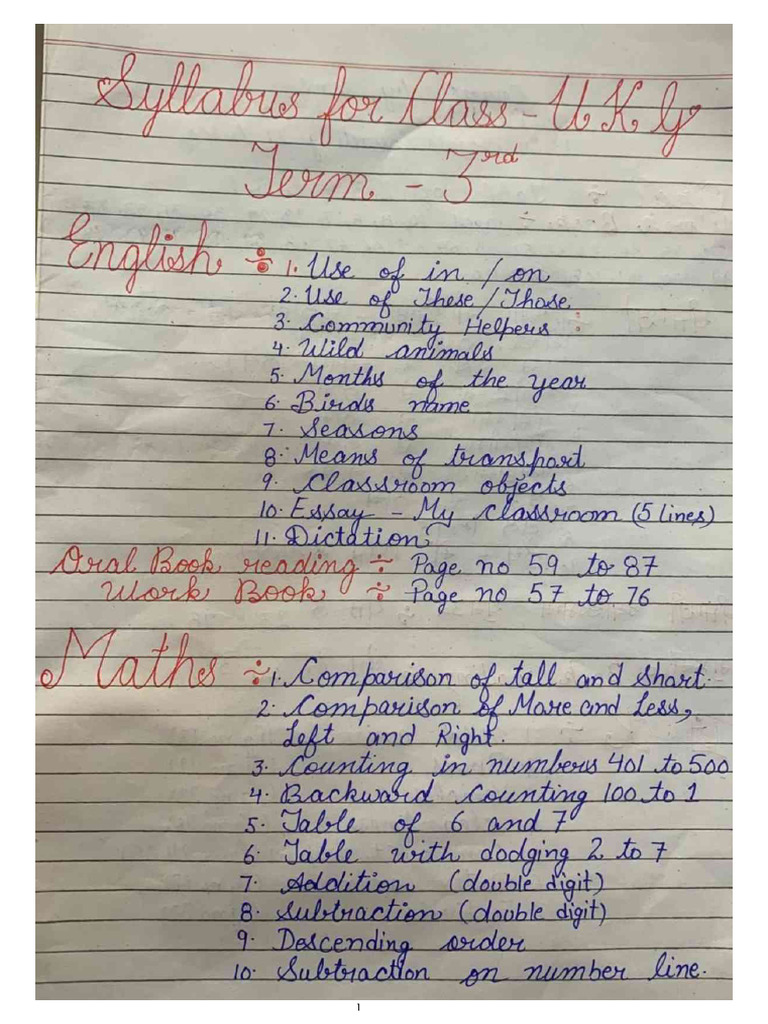 Syllabus for Class - U.K.G
Term - 3rd
English ÷ 1. Use of in / on
2. Use of These / Those
3. Community Helpers
4. Wild animals
5. Months of the year
6. Birds name
7. Seasons
8. Means of transport
9. Classroom objects
10. Essay - My Classroom (5 lines)
11. Dictation
Oral Book reading ÷ Page no 59 to 87
Work Book ÷ Page no 57 to 76
Maths ÷ 1. Comparison of tall and short.
2. Comparison of More and Less,
Left and Right.
3. Counting in numbers 401 to 500
4. Backward counting 100 to 1
5. Table of 6 and 7
6. Table with dodging 2 to 7
7. Addition (double digit)
8. Subtraction (double digit)
9. Descending order
10. Subtraction on number line.
1